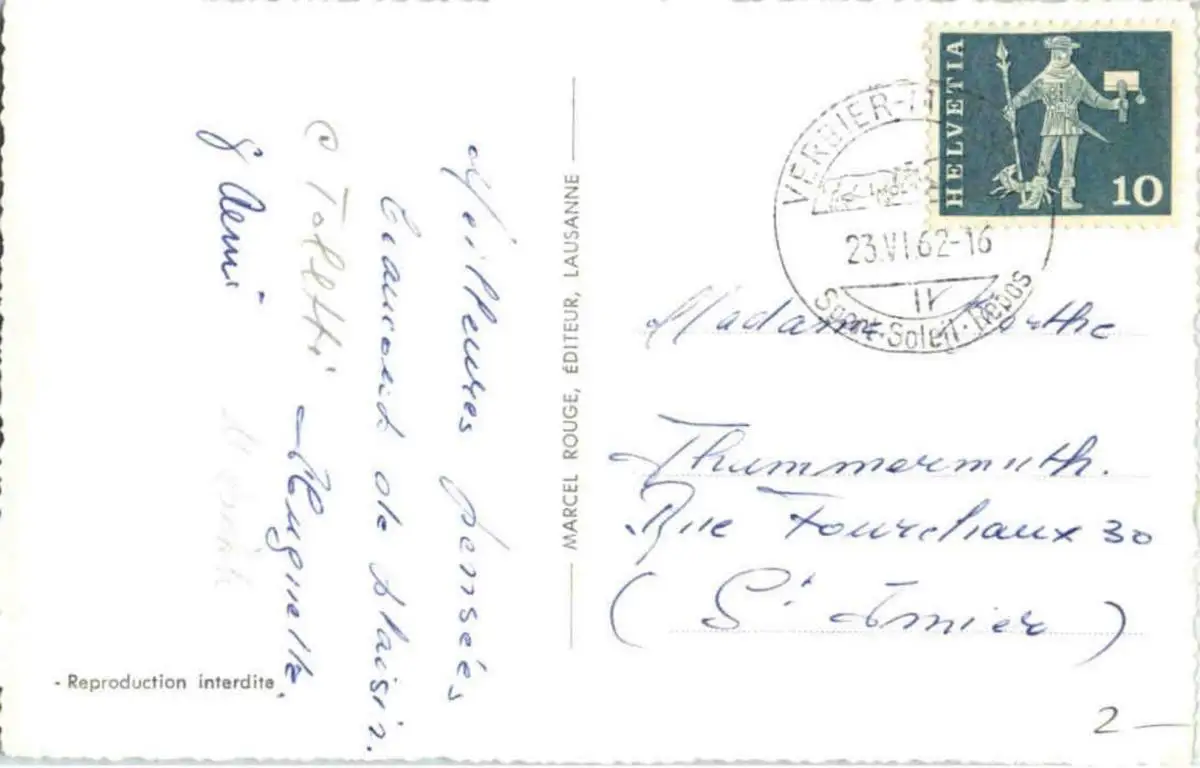 Meilleures pensées
Beaucoup de plaisir.
Huguette.
MARCEL ROUGE, ÉDITEUR, LAUSANNE
- Reproduction interdite
HELVETIA
10
VERBIER
23.VI.62-16
Sport·Soleil·Repos
Madame
Thummermuth.
Rue Fourchaux 30
(St Imier)
2-